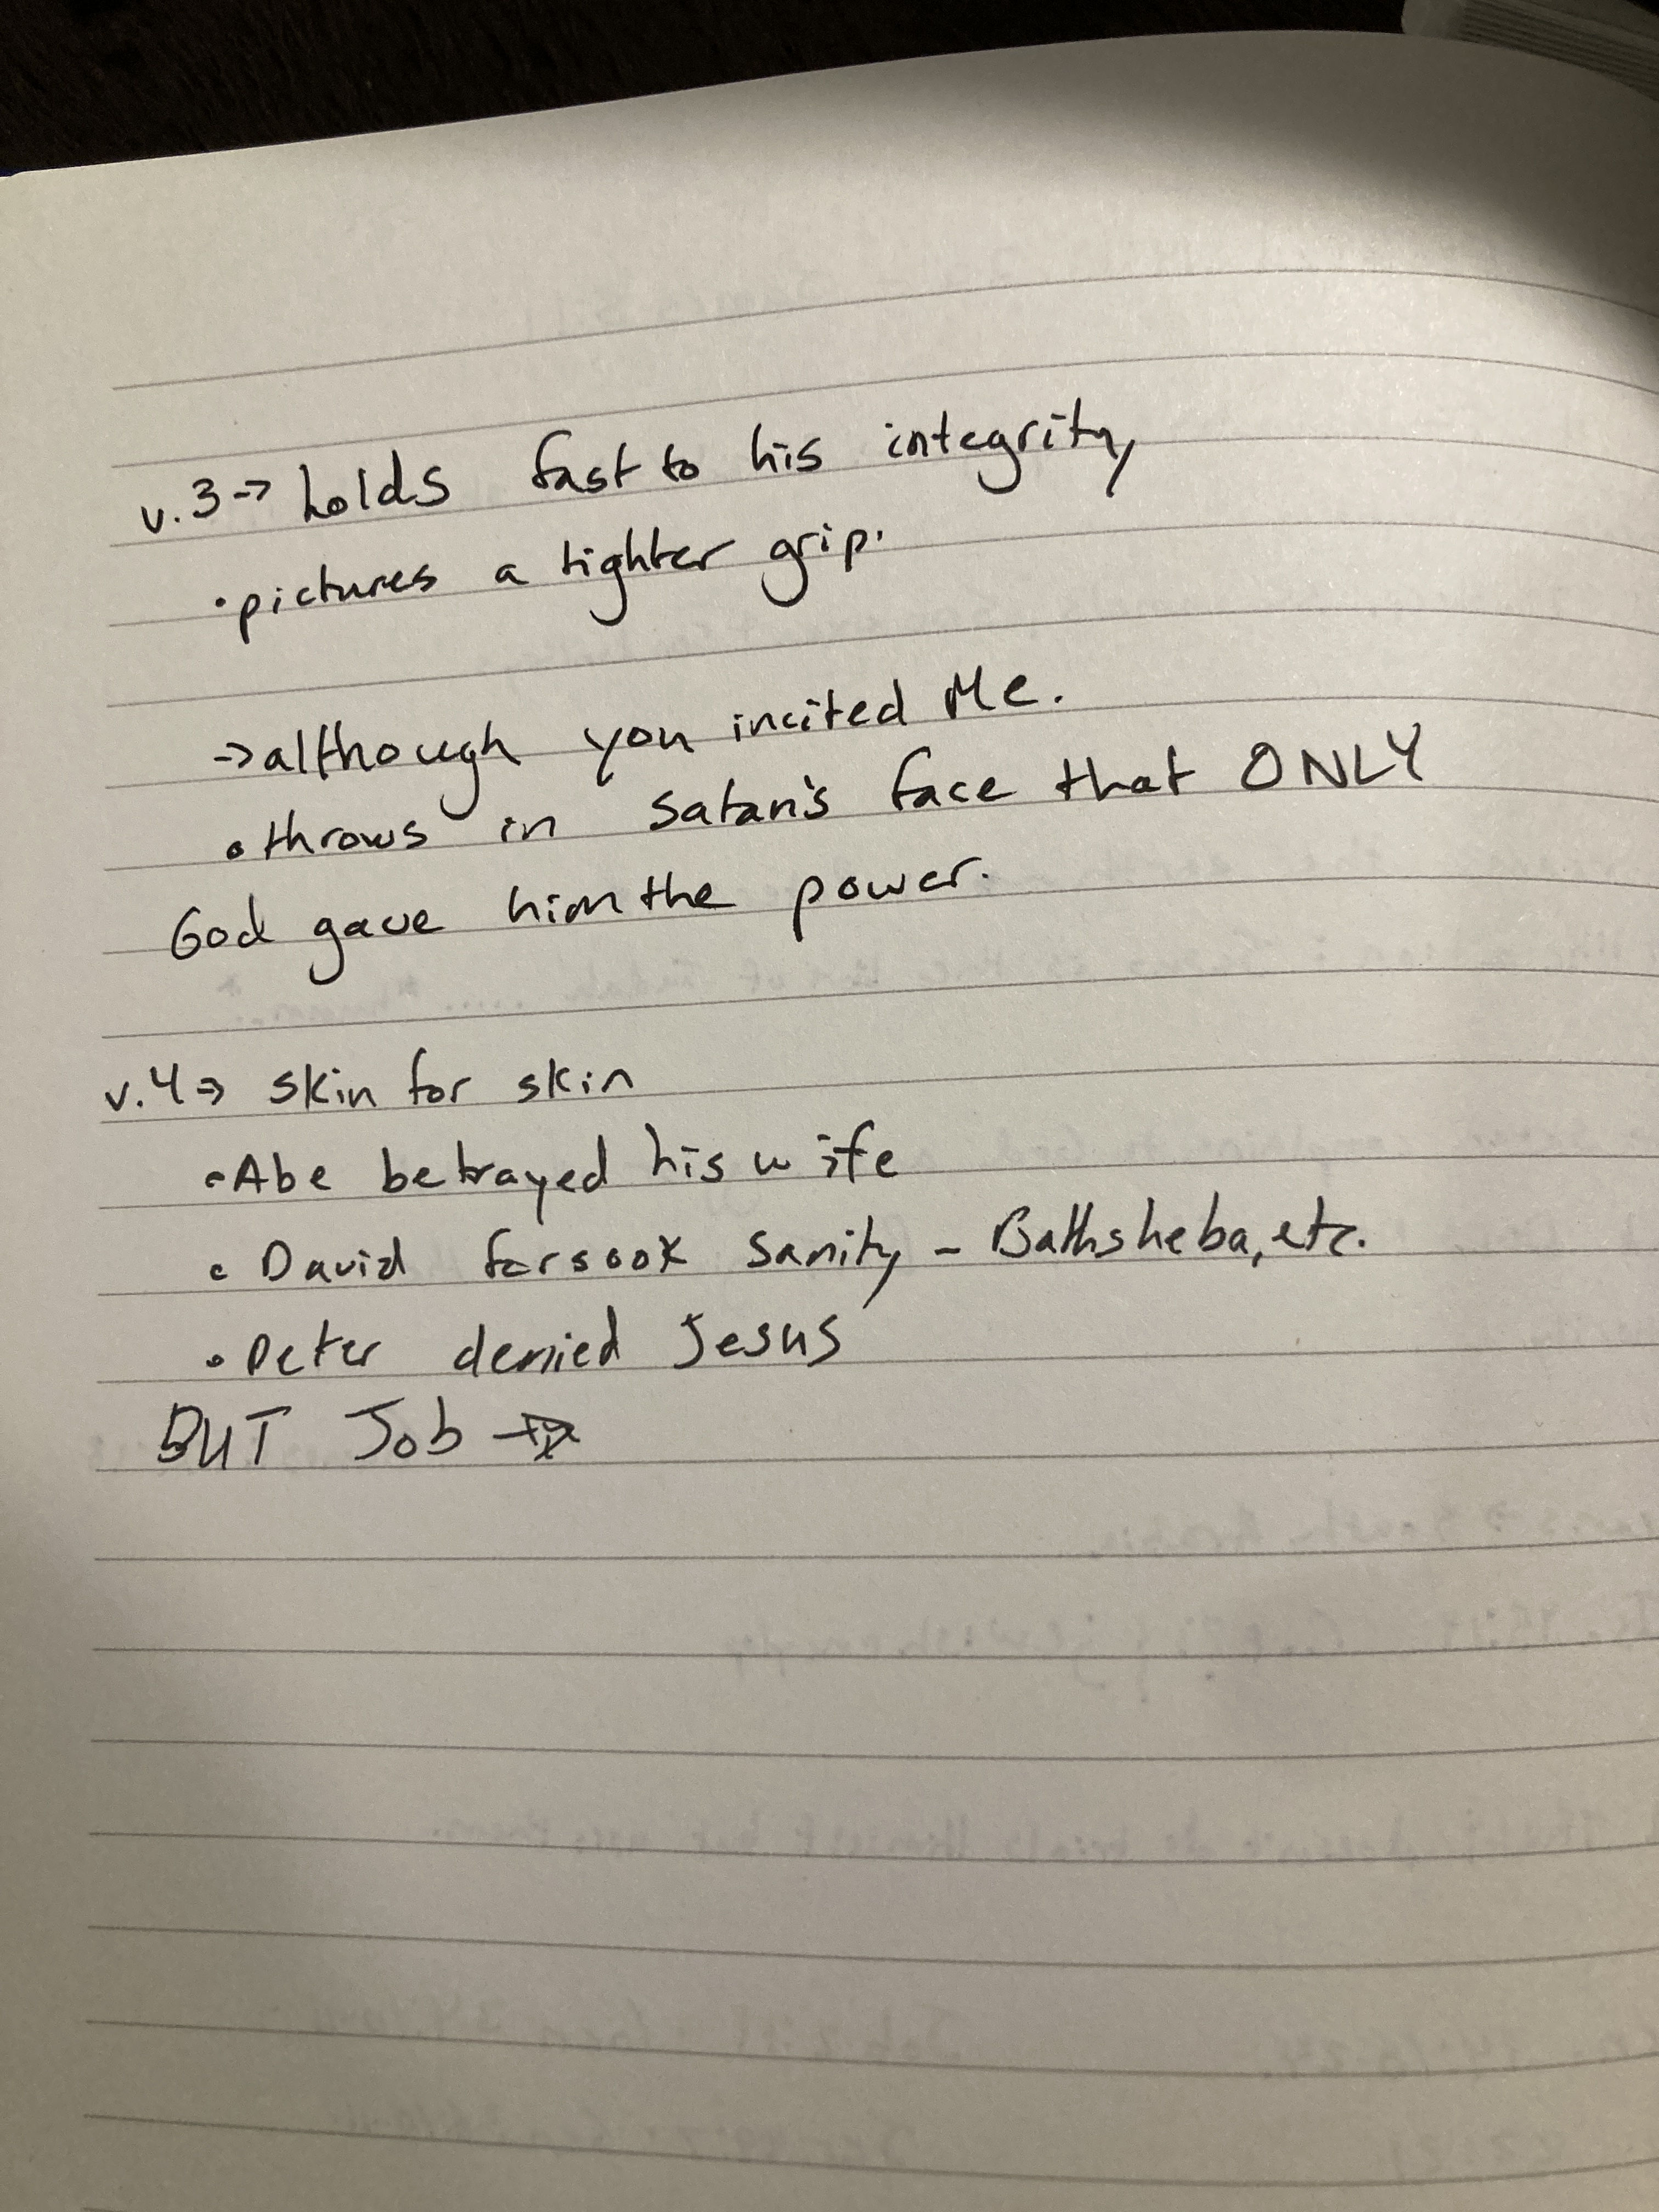 v.3 → holds fast to his integrity,
• pictures a tighter grip.
→ although you incited Me.
• throws in Satan's face that ONLY
God gave him the power.
v.4 ⇒ skin for skin
• Abe betrayed his wife
• David forsook sanity - Bathsheba, etc.
• Peter denied Jesus
BUT Job →